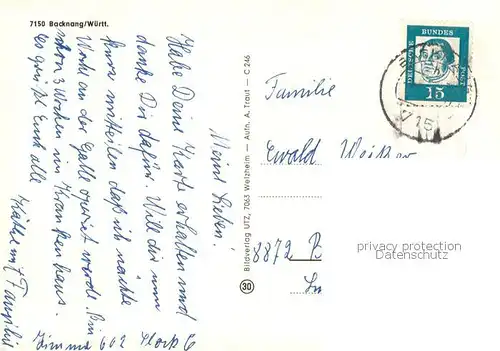 7150 Backnang/Württ.
Meine Lieben!
Habe Deine Karte erhalten und
danke Dir dafür. Will dir nun
kurz mitteilen daß ich nächste
Woche an der Galle operiert werde. Bin
schon 3 Wochen im Krankenhaus.
Es grüßt Euch alle
Käthe mit Familie
Zimmer 602 Stock 6
Bildverlag UTZ, 7063 Welzheim — Aufn. A. Traut — C 246
30
DEUTSCHE
BUNDES
POST
15
715
Familie
Ewald
8872 B
privacy protection
VENDOR